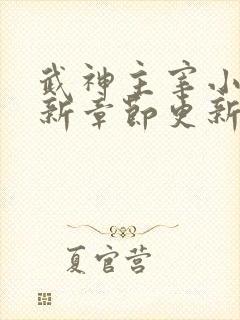 武神主宰小
新章节更新
夏官营